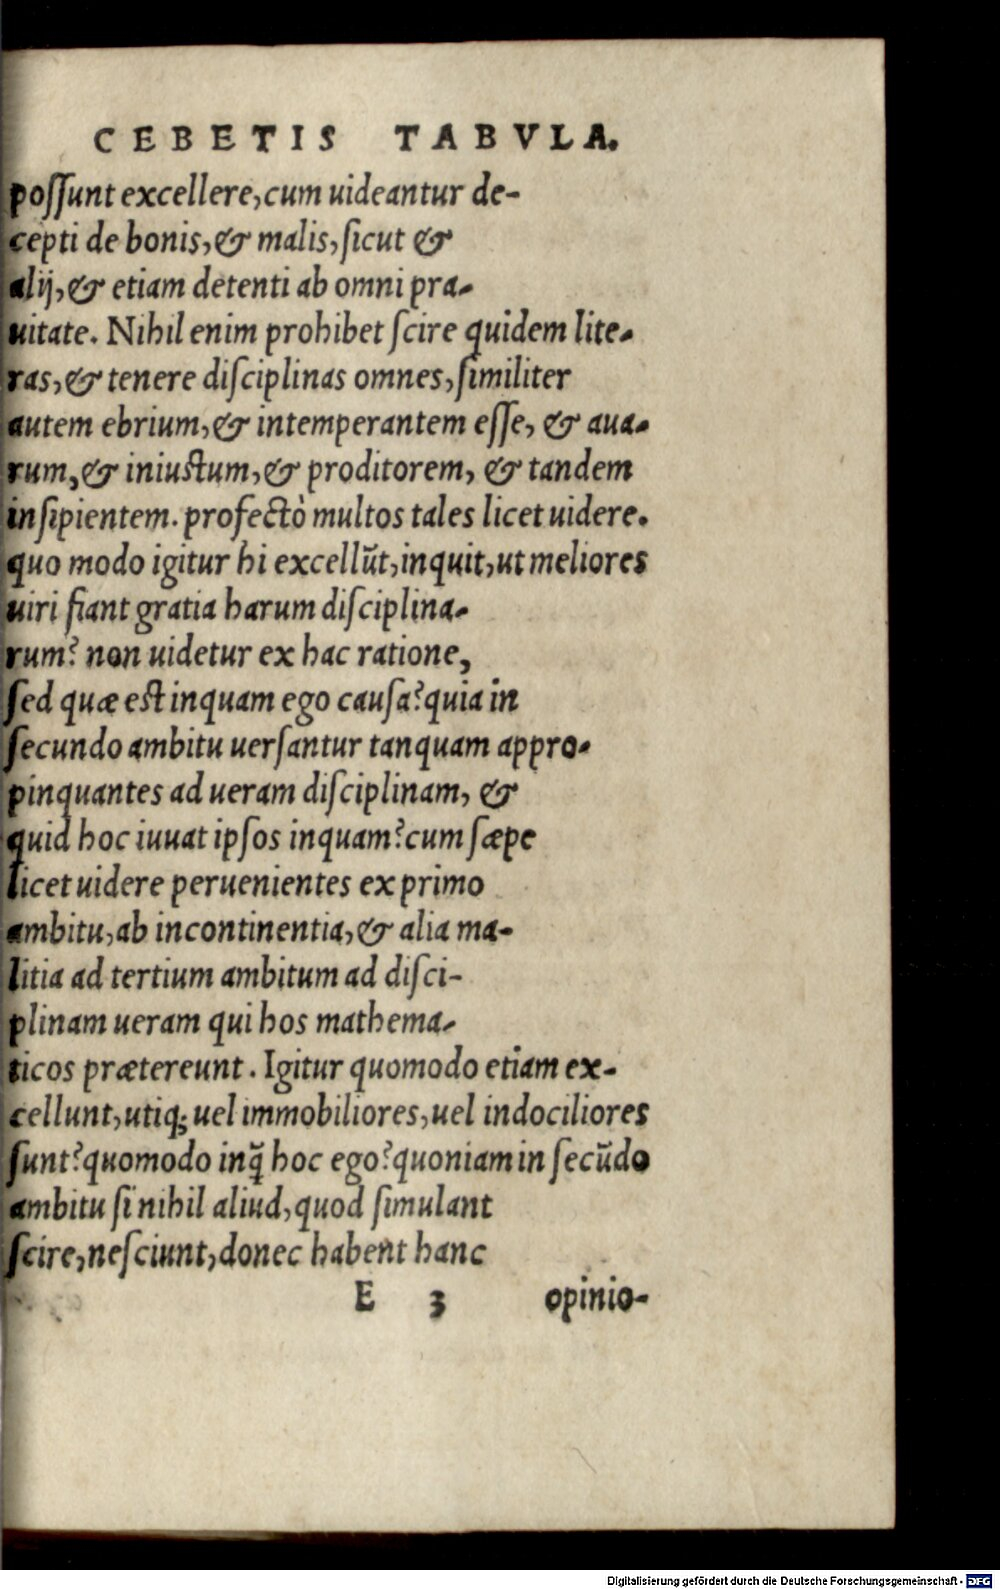 CEBETIS TABVLA.
poſſunt excellere,cum uideantur de-
cepti de bonis,& malis,ſicut &
alij,& etiam detenti ab omni pra-
uitate. Nihil enim prohibet ſcire quidem lite-
ras,& tenere diſciplinas omnes,ſimiliter
autem ebrium,& intemperantem eſſe, & aua-
rum,& iniuſtum,& proditorem, & tandem
inſipientem. profectò multos tales licet uidere.
quo modo igitur hi excellũt,inquit,ut meliores
uiri fiant gratia harum diſciplina-
rum? non uidetur ex hac ratione,
ſed quæ eſt inquam ego cauſa?quia in
ſecundo ambitu uerſantur tanquam appro-
pinquantes ad ueram diſciplinam, &
quid hoc iuuat ipſos inquam?cum ſæpe
licet uidere peruenientes ex primo
ambitu,ab incontinentia,& alia ma-
litia ad tertium ambitum ad diſci-
plinam ueram qui hos mathema-
ticos prætereunt. Igitur quomodo etiam ex-
cellunt,utiq; uel immobiliores,uel indociliores
ſunt?quomodo inq̃ hoc ego?quoniam in ſecũdo
ambitu ſi nihil aliud,quod ſimulant
ſcire,neſciunt,donec habent hanc
E 3 opinio-
Digitalisierung gefördert durch die Deutsche Forschungsgemeinschaft - DFG